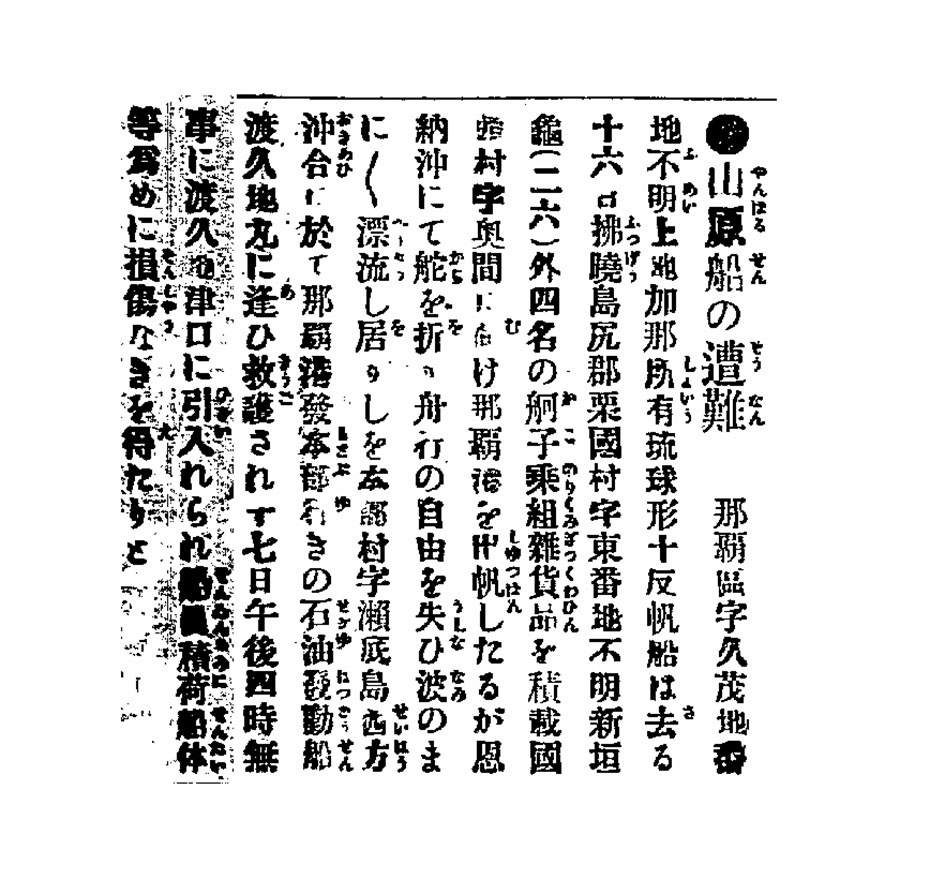 ●山原船の遭難　那覇區字久茂地番
地不明上地加那所有琉球形十反帆船は去る
十六日拂曉島尻郡粟國村字東番地不明新垣
龜(二六)外四名の舸子乘組雜貨品を積載國
頭村字奥間に向け那覇港を出帆したるが恩
納沖にて舵を折り舟行の自由を失ひ波のま
に〱漂流し居りしを本部村字瀬底島西方
沖合に於て那覇港發本部行きの石油發動船
渡久地丸に逢ひ救護されて七日午後四時無
事に渡久地津口に引入れられ船員積荷船体
等爲めに損傷なきを得たりと